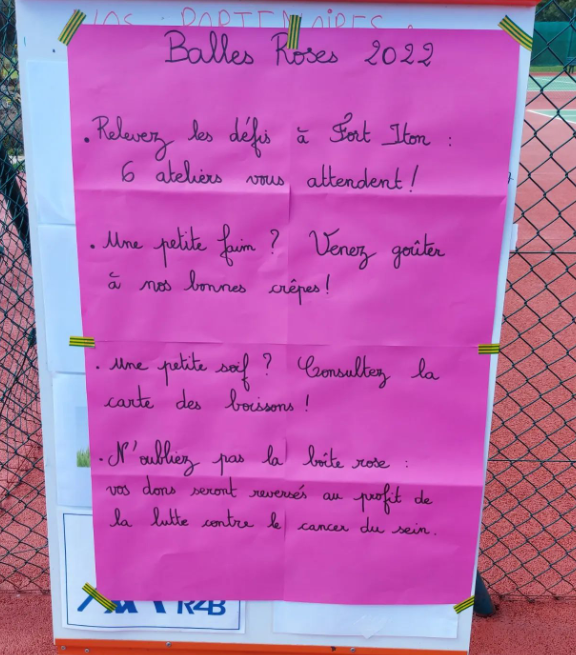 NOS PARTENAIRES :
Balles Roses 2022
. Relevez les défis à Fort Iton :
6 ateliers vous attendent !
. Une petite faim ? Venez goûter
à nos bonnes crêpes !
. Une petite soif ? Consultez la
carte des boissons !
. N'oubliez pas la boîte rose :
vos dons seront reversés au profit de
la lutte contre le cancer du sein.